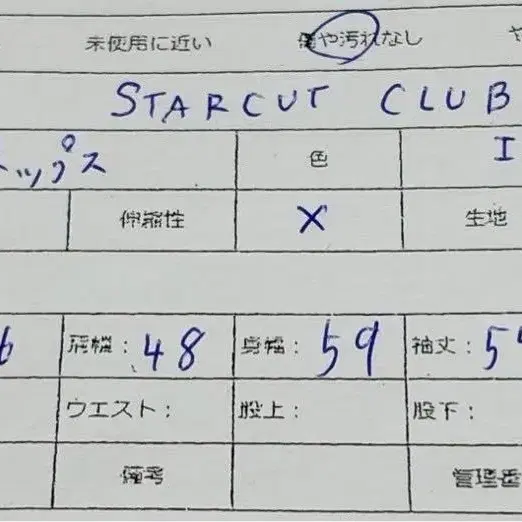 未使用に近い 傷や汚れなし や
STARCUT CLUB
トップス 色
伸縮性 X 生地
6 肩幅：48 身幅：59 袖丈：5
ウエスト： 股上： 股下：
備考 管理番